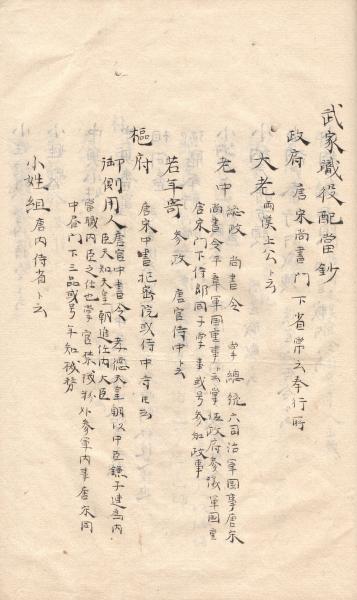 武家職役配當鈔
政府 唐宋尚書門下省常云奉行所
大老 兩漢上公ト云
老中 総政 尚書令 掌總統六司治軍國事唐宋
尚書令平章軍國重事云掌 政府参議軍國重
唐宋門下侍郎同平章事或号参知政事
若年寄 参政 唐官侍中ト云
樞府 唐宋中書樞密院或侍中寺
御側用人 唐官中書令 孝德天皇朝以中臣鎌子連為内
臣天知天皇朝進任内大臣
當職内臣之仕也掌官禁 外参軍内事唐宋同
中書門下三品或号平知
小姓組 唐内侍省ト云